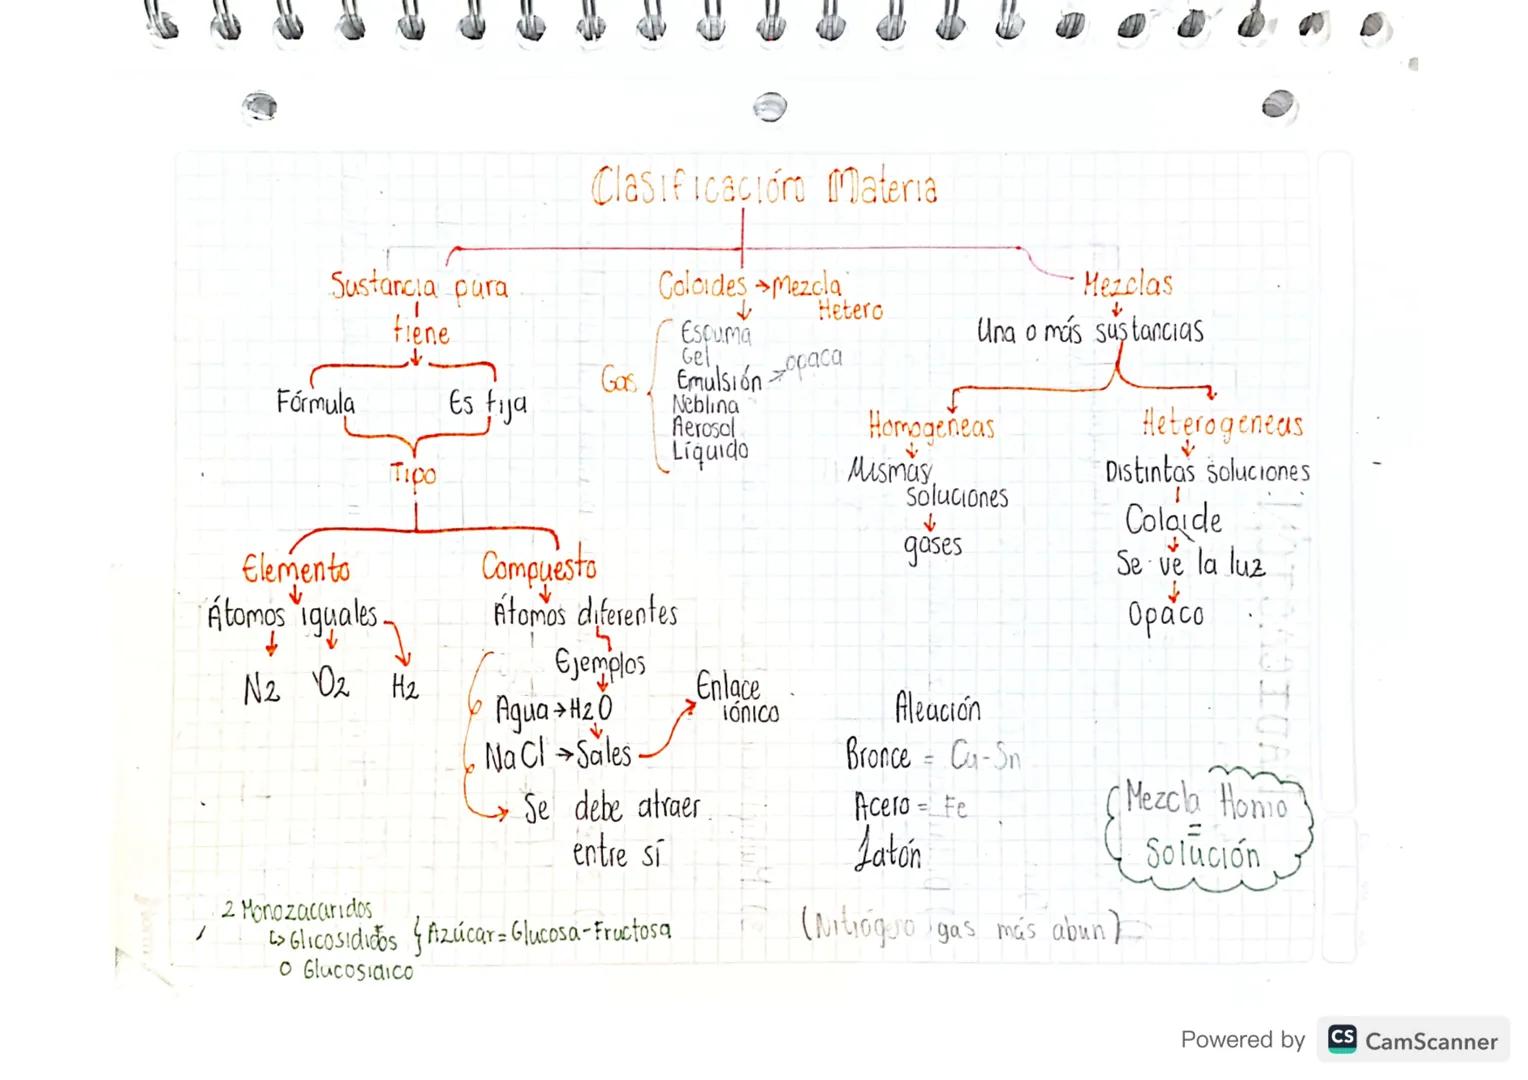 Clasificación Materia
Sustancia pura
tiene
Fórmula
Es fija
Tipo
Elemento
Átomos iguales
N2
O2
H2
Compuesto
Átomos diferentes
Ejemplos
Agua → H2O
NaCl → Sales
Enlace
iónico
Se debe atraer
entre sí
Coloides → Mezcla
Hetero
Gas
Espuma
Gel
Emulsión → opaca
Neblina
Aerosol
Líquido
Mezclas
Una o más sustancias
Homogeneas
Mismas
soluciones
gases
Heterogeneas
Distintas soluciones
Coloide
Se ve la luz
Opaco
Aleación
Bronce = Cu-Sn
Acero = Fe
Latón
Mezcla Homo
=
Solución
2 Monozacaridos
↳ Glicosididos
o Glucosidico
} Azúcar = Glucosa-Fructosa
(Nitrógeno gas más abun)
Powered by CS CamScanner